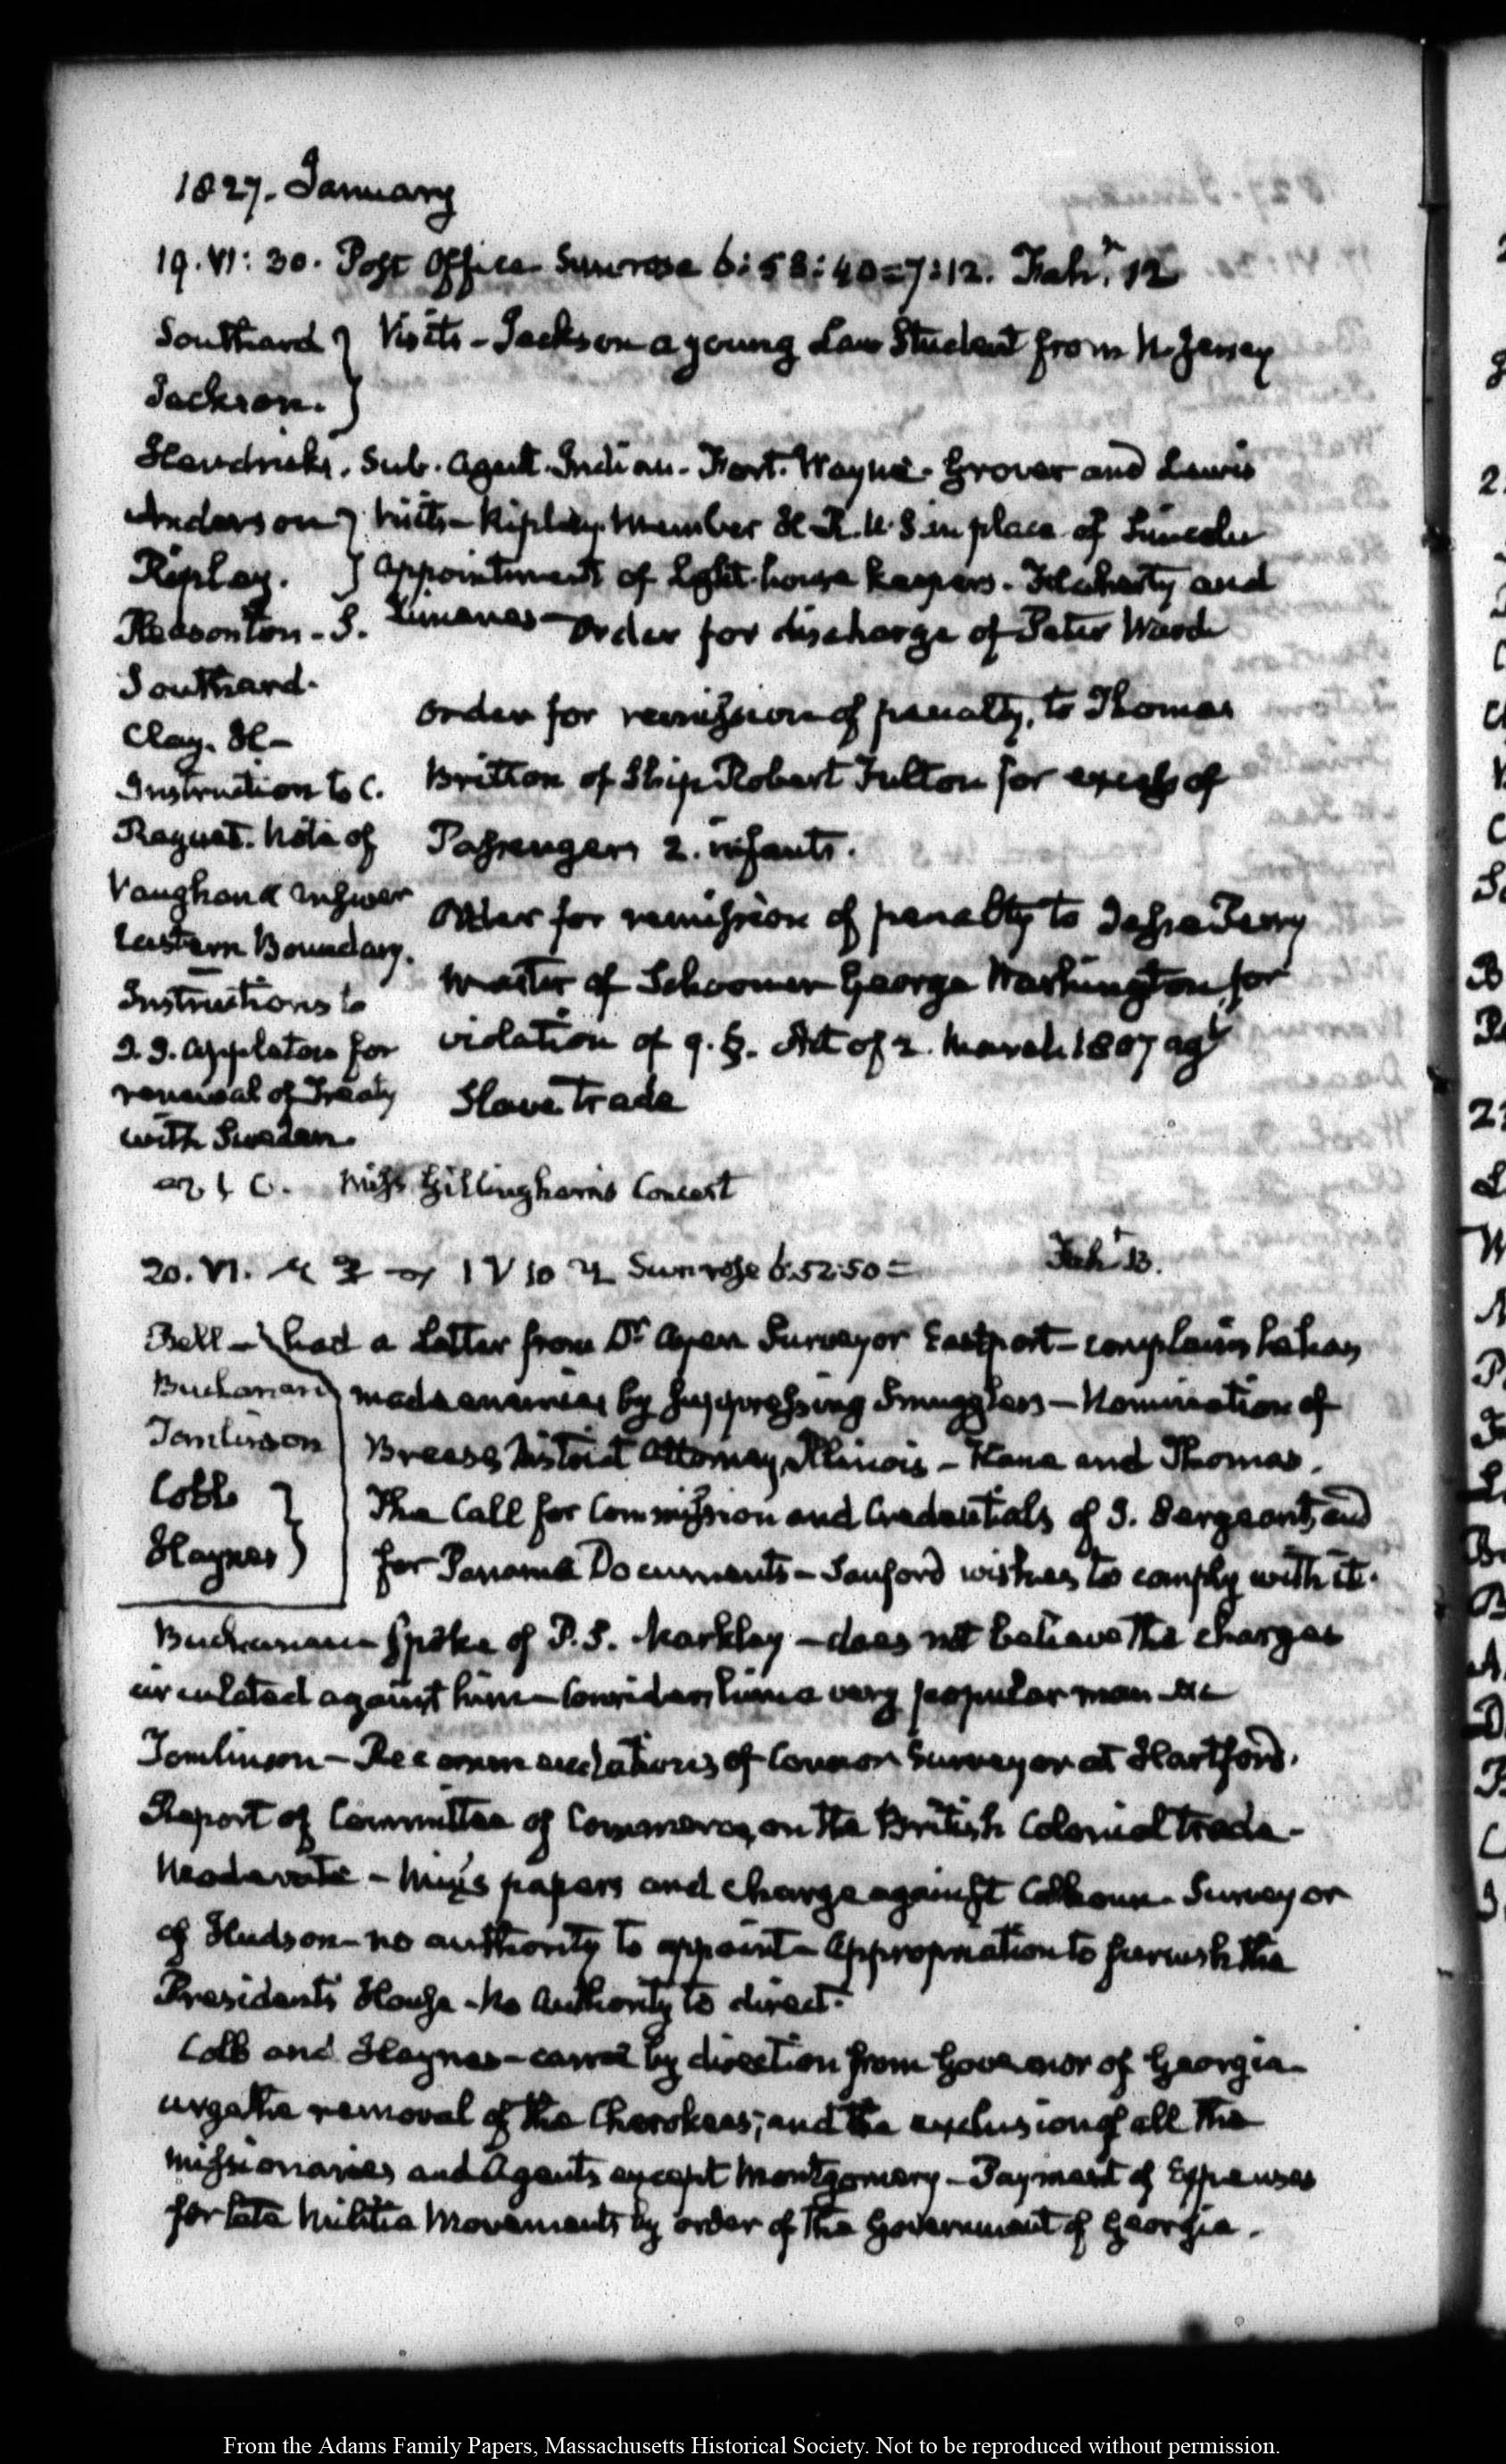 1827. January
19. VI: 30. Post Office Sunrose 6:58:40=7:12. Feb. 12
Southard } Visits - Jackson a young Law Student from N. Jersey
Jackson. }
Hendricks. Sub. Agent. Indian. Fort. Wayne. Grover and Lewis
Anderson } Visits - Ripley. Member H. R. U.S in place of Lincoln
Ripley. } Appointments of Light-house Keepers - Flaherty and
Pleasonton - S. Order for discharge of Peter Ward
Southard.
Clay. H-
Instruction to C.
Raguet. Note of
Vaughan & Answer
Eastern Boundary.
Instructions to
J. J. Appleton for
renewal of Treaty
with Sweden.
Order for remission of penalty, to Thomas
Britton of Ship Robert Fulton for excess of
Passengers 2. infants.
Order for remission of penalty to Jesse Terry
Master of Schooner George Washington, for
violation of 9. §. Act of 2. March 1807 agt
Slave Trade
Miss Gillingham's Concert
20. VI. Sunrose 6:52:50= 13.
Bell - had a Letter from Dr Ayer Surveyor Eastport - complains he has
Buchanan made enemies by suppressing Smugglers - Nomination of
Tomlinson Breese District Attorney, Illinois - Kane and Thomas.
Cobb } The Call for Commission and Credentials of J. Sergeant, and
Haynes } for Panama Documents - Sanford wishes to comply with it.
Buchanan - Spoke of P. S. Markley - does not believe the charges
circulated against him - Considers him a very popular man - &c
Tomlinson - Recommendations of Connor Surveyor at Hartford.
Report of Committee of Commerce, on the British Colonial trade -
Moderate - Mix's papers and charge against Calhoun - Surveyor
of Hudson - no authority to appoint - Appropriation to furnish the
Presidents House - No Authority to direct.
Cobb and Haynes - came by direction from Governor of Georgia
urge the removal of the Cherokees; and the exclusion of all the
Missionaries and Agents except Montgomery - Payment of Expenses
for late Militia Movements by order of the Government of Georgia.
From the Adams Family Papers, Massachusetts Historical Society. Not to be reproduced without permission.